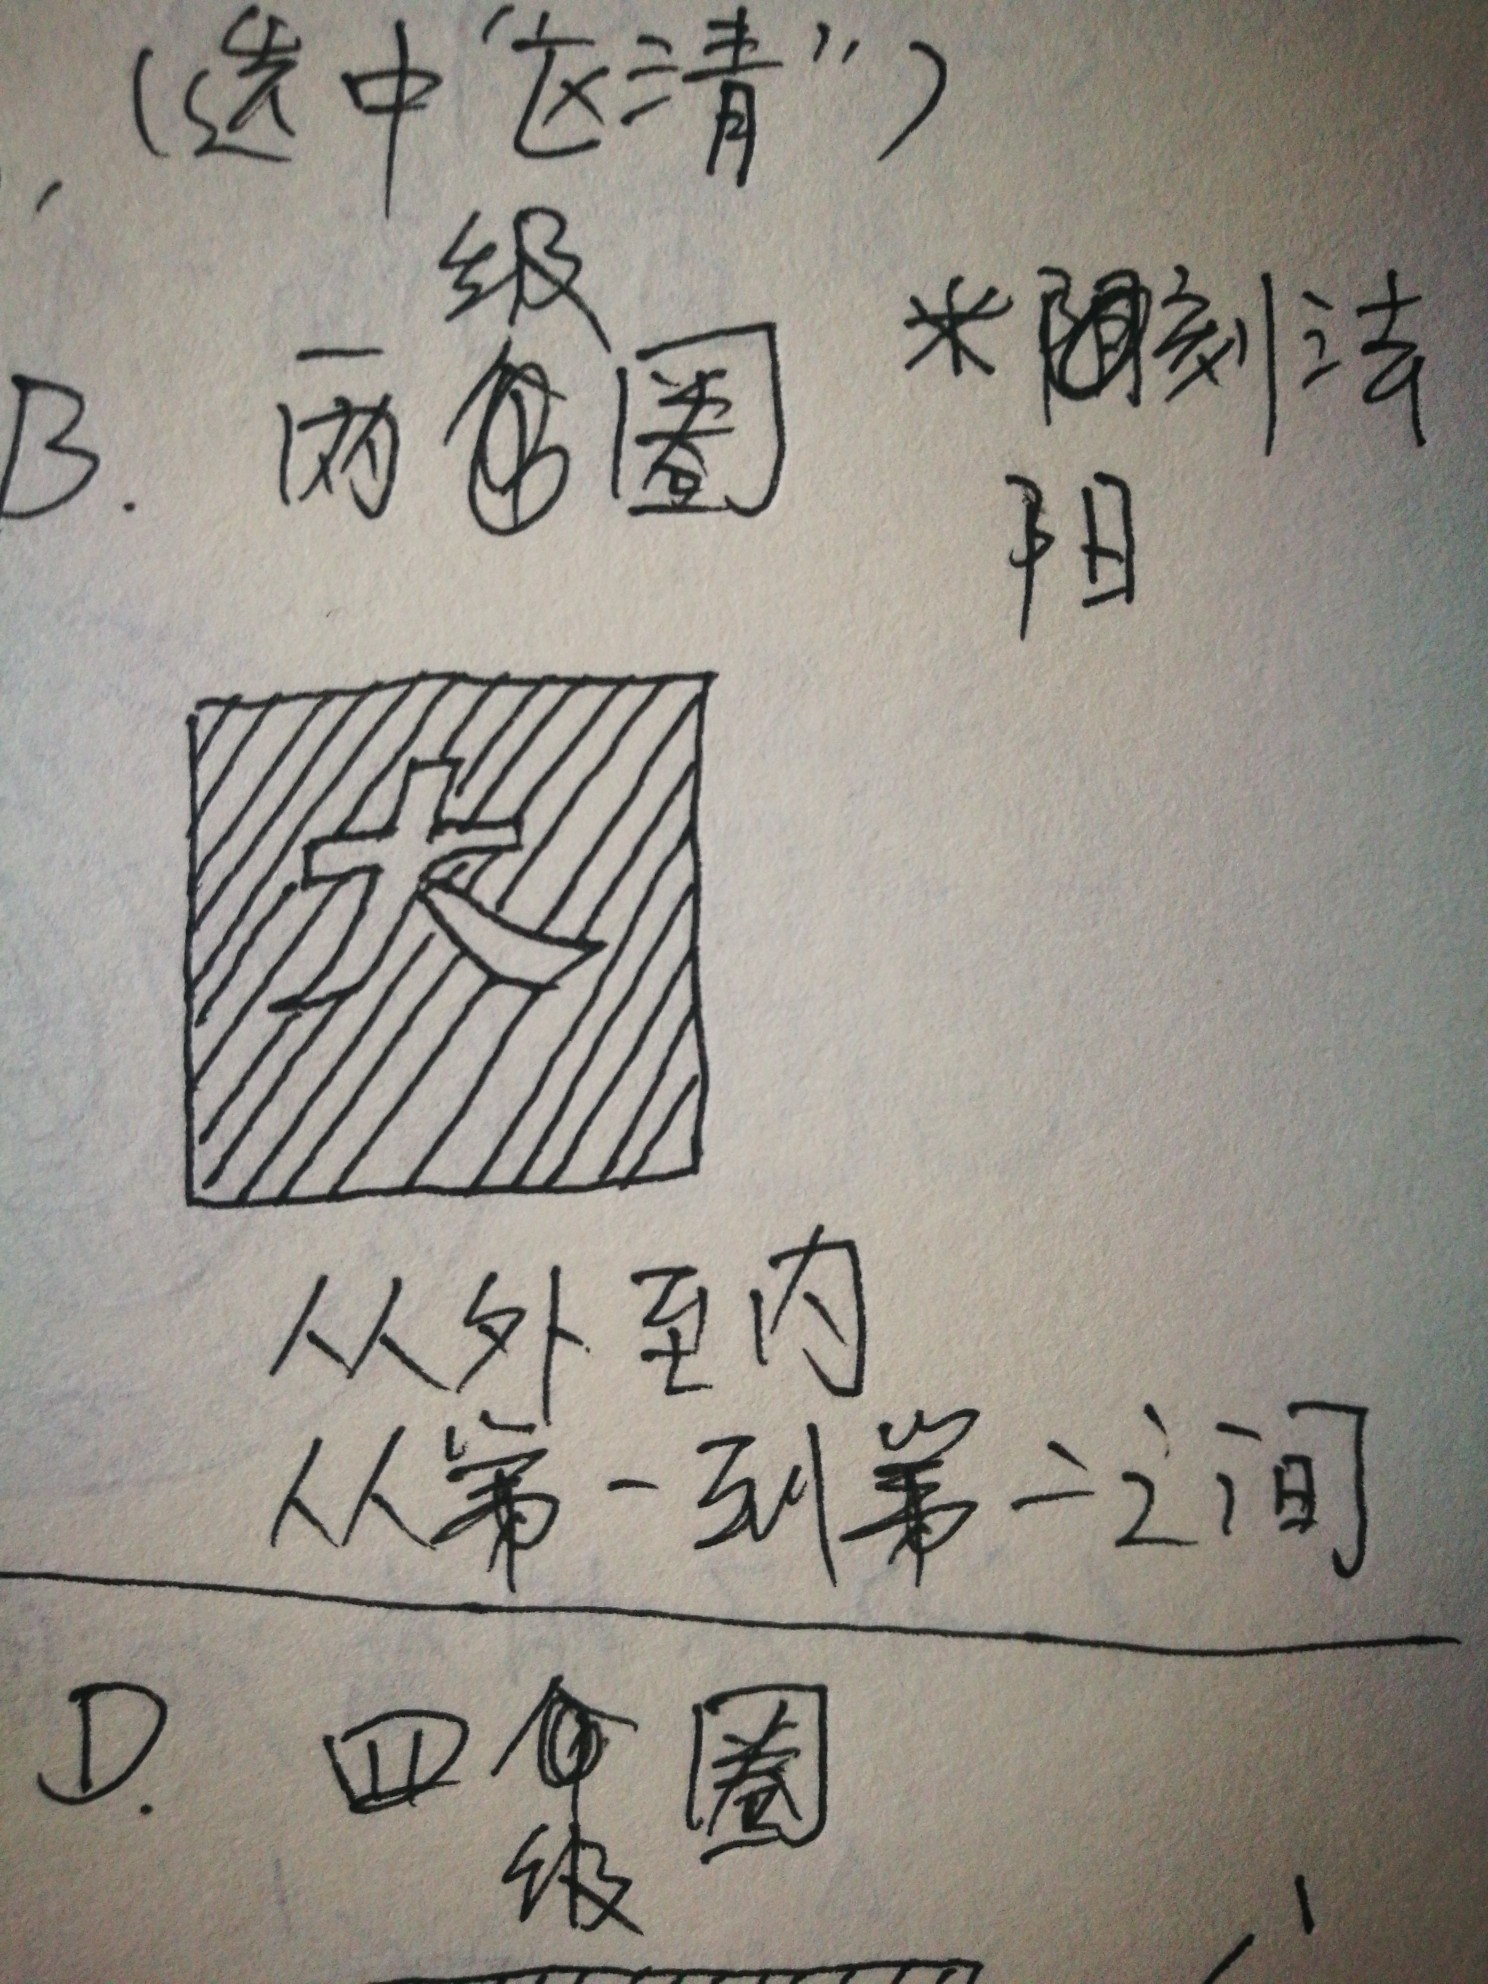 (选中“这清”)
级
B. 两圈 *刻法
阳
大
从外至内
从第一到第二之间
D. 四圈
级